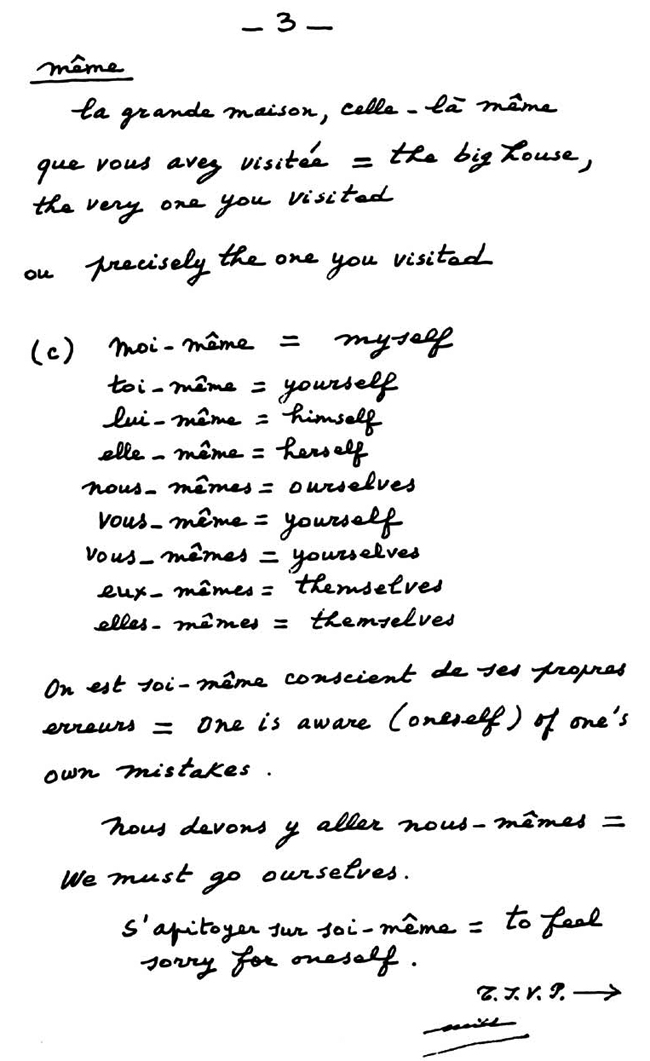 - 3 -
même
la grande maison, celle-là même
que vous avez visitée = the big house,
the very one you visited
ou precisely the one you visited
(c) moi-même = myself
toi-même = yourself
lui-même = himself
elle-même = herself
nous-mêmes = ourselves
vous-même = yourself
vous-mêmes = yourselves
eux-mêmes = themselves
elles-mêmes = themselves
On est soi-même conscient de ses propres
erreurs = One is aware (oneself) of one's
own mistakes.
Nous devons y aller nous-mêmes =
We must go ourselves.
S'apitoyer sur soi-même = to feel
sorry for oneself.
T.S.V.P. →